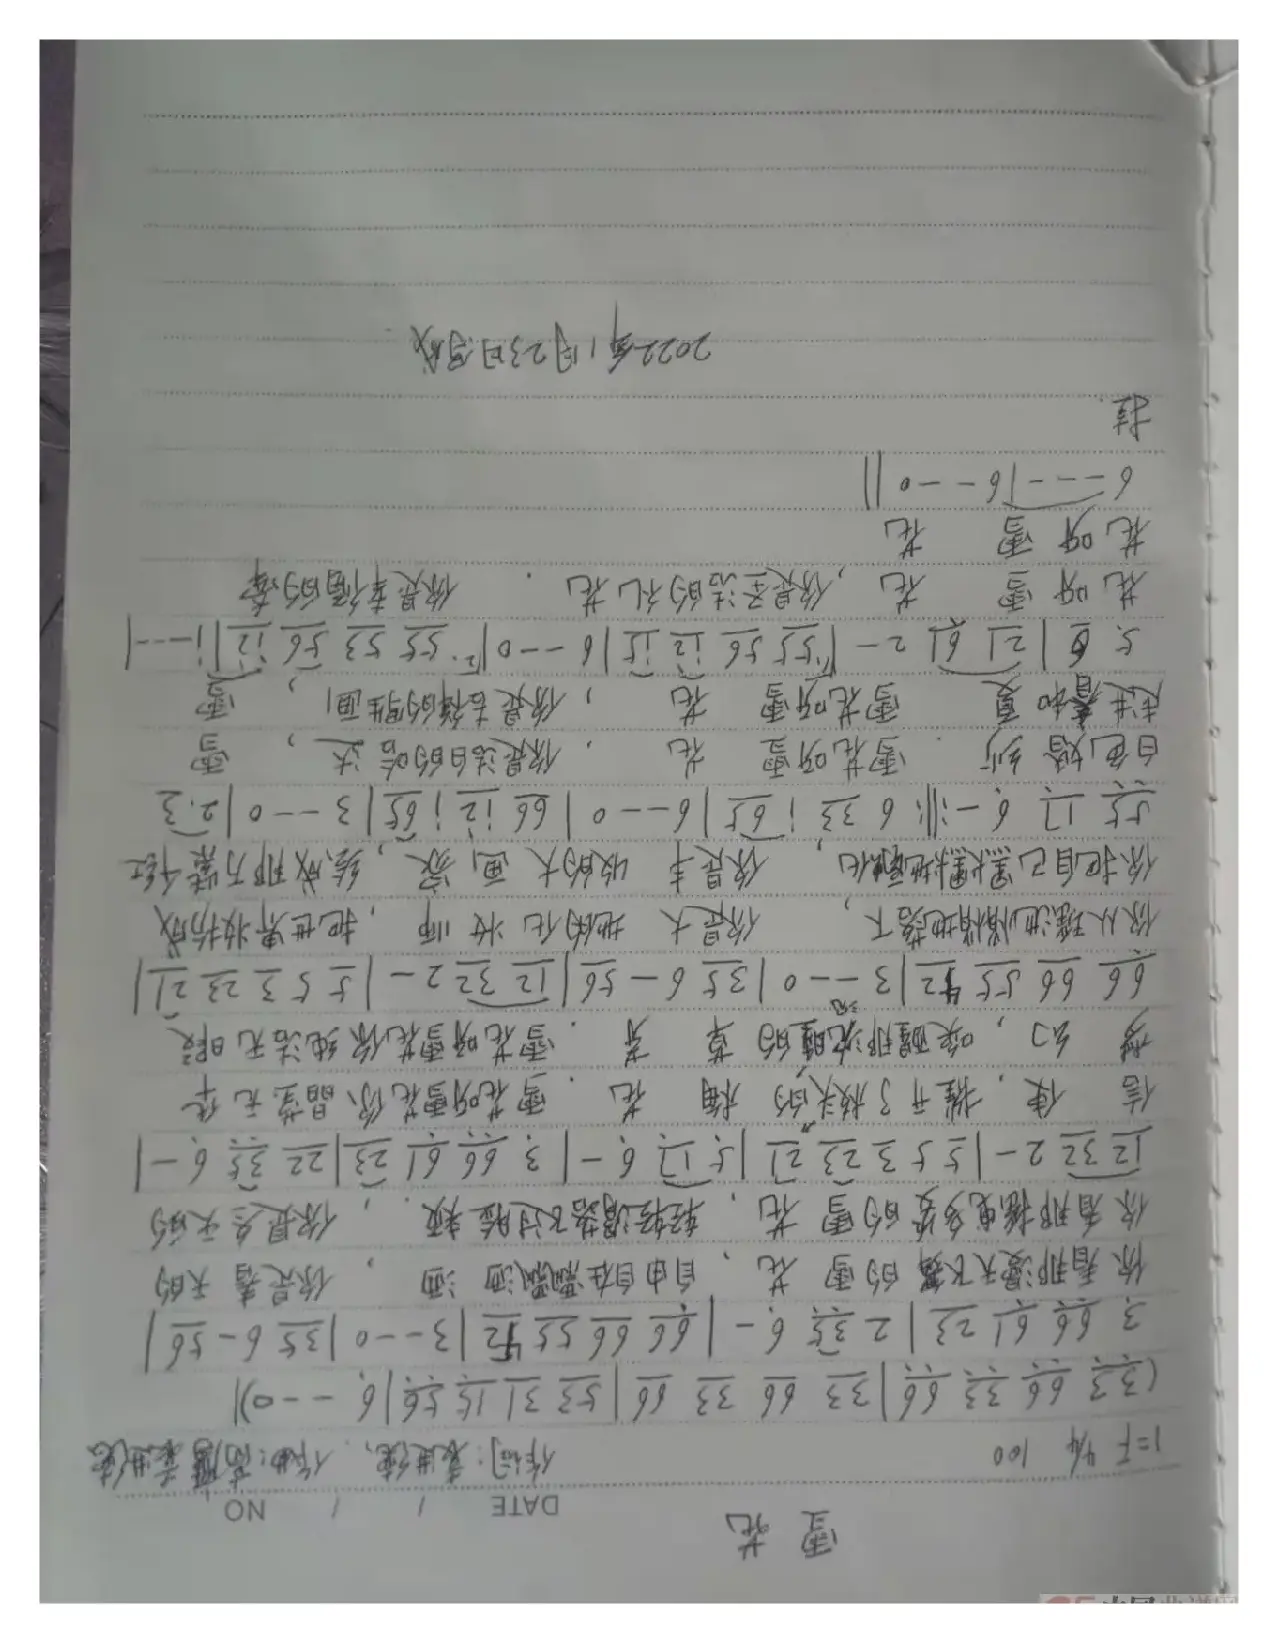 雪 花
DATE / / NO
1=F 4/4 100 作词:袁进德、作曲:高腾 袁进德
(33 66 33 66|33 66 33 66|53 31 15 56|6 - - 0)|
3 66 61 23|2 35 6 -|66 66 55 42|3 - - 0|35 6 - 56|
你看那漫天飞舞的雪 花,自由自在飘飘洒 洒,你是春天的
你看那摇曳多姿的雪 花,轻轻滑落不过脸 颊,你是冬天的
12 32 2 -|5 5 3 23 21|5 17 6 -|3 66 61 23|22 35 6 -|
信 使,催开了枝头的 梅 花.雪花呀雪花你、晶莹无华
梦 幻,唤醒那沉睡的 草 芽.雪花呀雪花你纯洁无暇
66 66 55 42|3 - - 0|35 6 - 56|12 32 2 -|5 5 3 23 21|
你从瑶池悄悄地落下, 你是大 地的化 妆 师,把世界妆扮成
你把自己默默地融化, 你是丰 收的大 画 家,绘成那万紫千红
55 17 6 - :||: 6 33 i 65|6 - - 0|66 i2 i 65|3 - - 0|2 3
白色婚 纱.雪花呀雪 花.你是洁白的哈 达,雪
走进春和 夏 雪花呀雪 花,你是吉祥的 画,雪
5 6|21 61 2 -|55 56 i2 i5|6 - - 0|55 53 56 i2|i - - -|
花呀雪 花,你是圣洁的礼 花. 你是幸福的牵
花呀雪 花
6 - - -|6 - - 0||
挂.
2022年1月23日写成